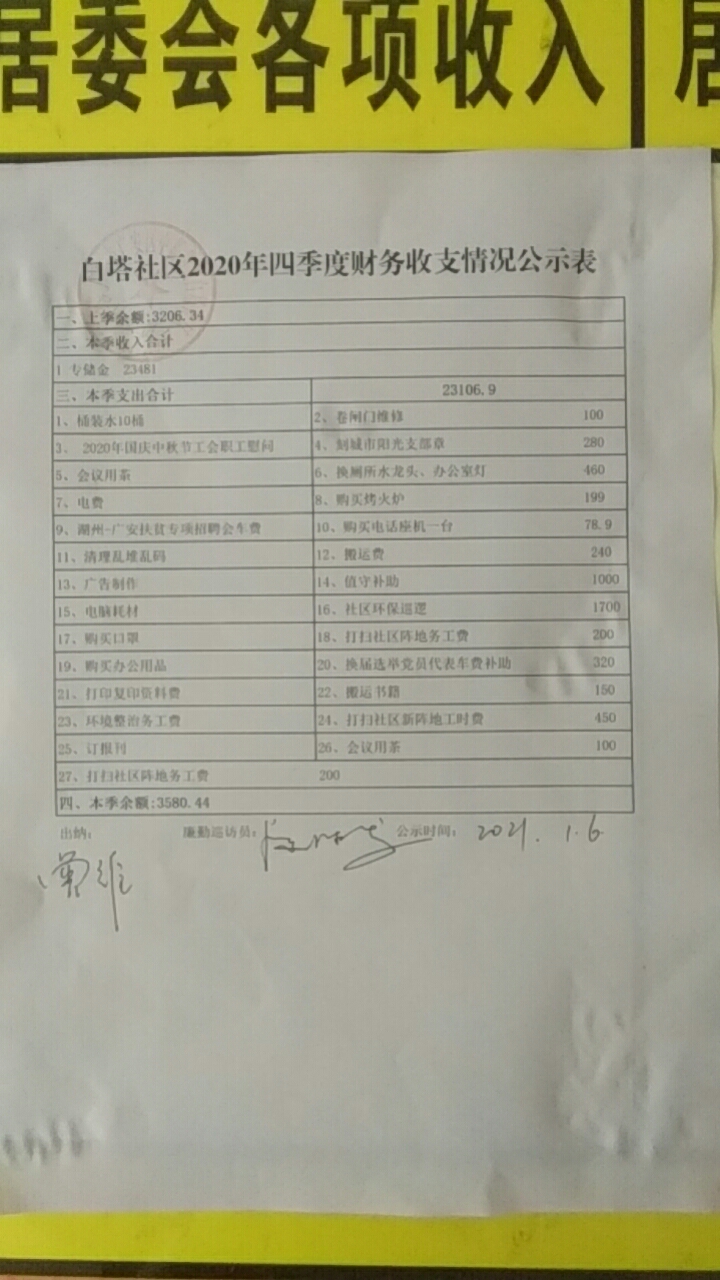 居委会各项收入 居
白塔社区2020年四季度财务收支情况公示表
一、上季余额:3206.34
二、本季收入合计
1 专储金 23481
三、本季支出合计 23106.9
1、桶装水10桶 2、卷闸门维修 100
3、 2020年国庆中秋节工会职工慰问 4、刻城市阳光支部章 280
5、会议用茶 6、换厕所水龙头、办公室灯 460
7、电费 8、购买烤火炉 199
9、湖州-广安扶贫专项招聘会车费 10、购买电话座机一台 78.9
11、清理乱堆乱码 12、搬运费 240
13、广告制作 14、值守补助 1000
15、电脑耗材 16、社区环保巡逻 1700
17、购买口罩 18、打扫社区阵地务工费 200
19、购买办公用品 20、换届选举党员代表车费补助 320
21、打印复印资料费 22、搬运书籍 150
23、环境整治务工费 24、打扫社区新阵地工时费 450
25、订报刊 26、会议用茶 100
27、打扫社区阵地务工费 200
四、本季余额:3580.44
出纳: 廉勤巡访员: 公示时间: 2021.1.6